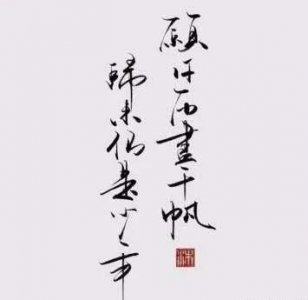 願你历盡千帆
歸來仍是少年